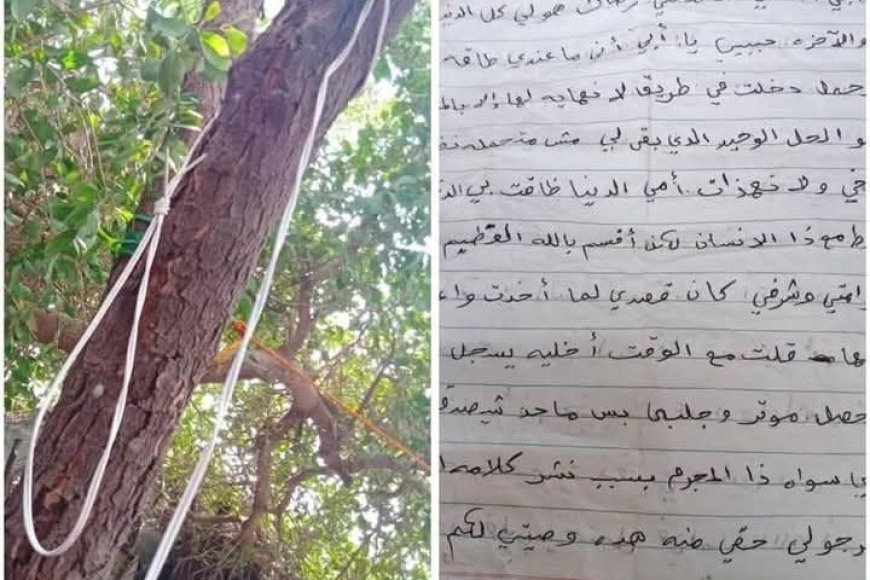 هو لي كل الدنيا
والآخره حبيبي يا أبي أن ما عندي طاقه
دخلت في طريق لا نهايه لها إلا
و الحل الوحيد الذي بقى لي مش متحمله
ولا نهذات أمي الدنيا ظاقت بي
مع ذا الانسان لكن أقسم بالله العظيم
وشرفي كان قصدي لما أخذت
قلت مع الوقت أخليه يسجل
حصل موتر و بس ما حد
سواه ذا المجرم بسبب نشر كلامه
لي حقي منه هذه وصيتي لكم